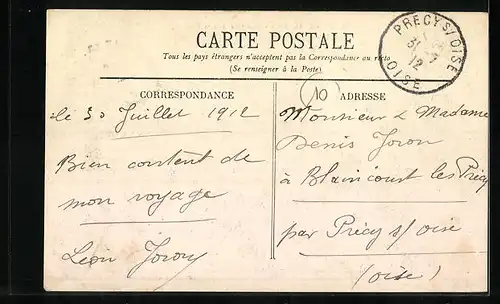 CARTE POSTALE
Tous les pays étrangers n'acceptent pas la Correspondance au recto
(Se renseigner à la Poste)
PRÉCY S/ OISE
31 7
12
OISE
CORRESPONDANCE
le 30 Juillet 1912
Bien content de
mon voyage
Léon Joron
10
ADRESSE
Monsieur & Madame
Denis Joron
à Blaincourt les Précy
par Précy s/ oise
(oise)